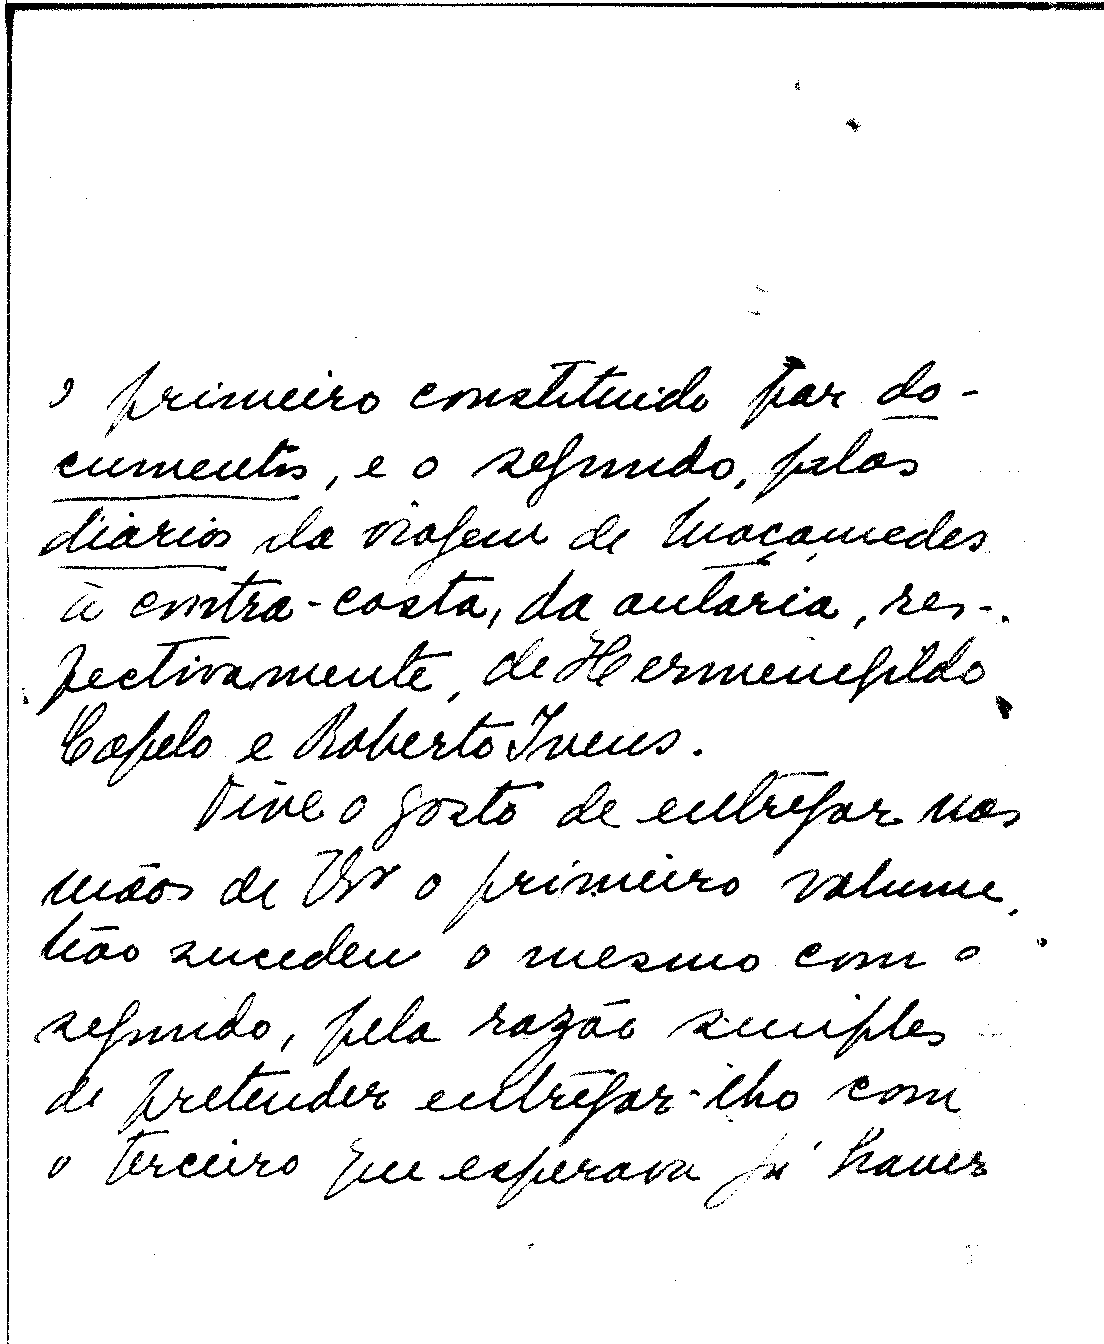 o primeiro constituido por do-
cumentos, e o segundo, pelos
diarios da viagem de Moçamedes
à contra-costa, da autoria, res-
pectivamente, de Hermenegildo
Capelo e Roberto Ivens.
Tive o gosto de entregar nas
mãos de V. o primeiro volume.
Não sucedeu o mesmo com o
segundo, pela razão simples
de pretender entregar-lho com
o terceiro que esperava já haver